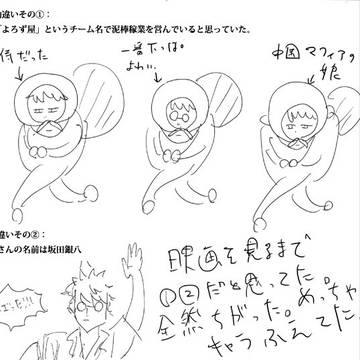 違いその①：
「よろず屋」というチーム名で泥棒稼業を営んでいると思っていた。
侍だった
一番下っぱ。
よわい…
中国マフィアの
娘
違いその②：
さんの名前は坂田銀八
映画を見るまで
①②だと思ってた。
全然ちがった。めっちゃ
キャラふえてた